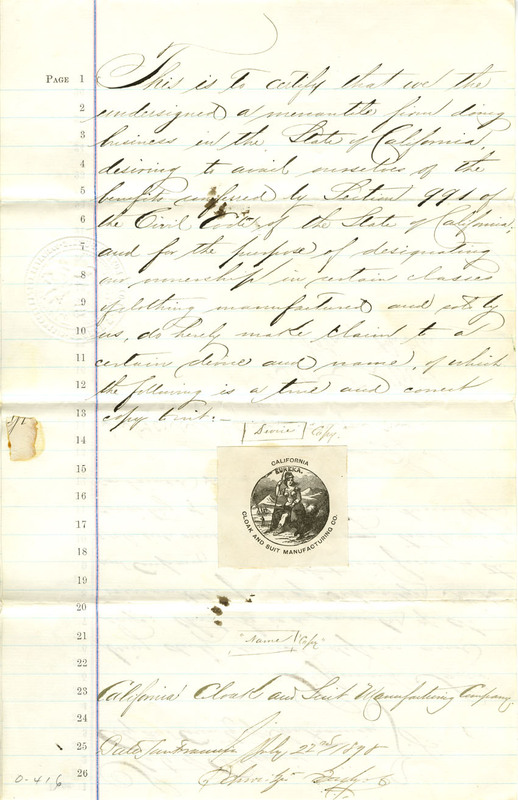 Page 1 This is to certify that we the
2 undersigned a mercantile firm doing
3 business in the State of California,
4 desiring to avail ourselves of the
5 benefits conferred by Section 991 of
6 the Civil Code of the State of California,
7 and for the purpose of designating
8 our ownership in certain classes
9 of clothing manufactured and sold by
10 us, do hereby make claim to a
11 certain device and name, of which
12 the following is a true and correct
13 copy to wit:-
14 "Device" "Copy"
15
CALIFORNIA
EUREKA.
CLOAK AND SUIT MANUFACTURING CO.
16
17
18
19
20
21 "Name" Copy"
22
23 California Cloak and Suit Manufacturing Company.
24
25 Dated San Francisco July 22nd 1898
26
0-416